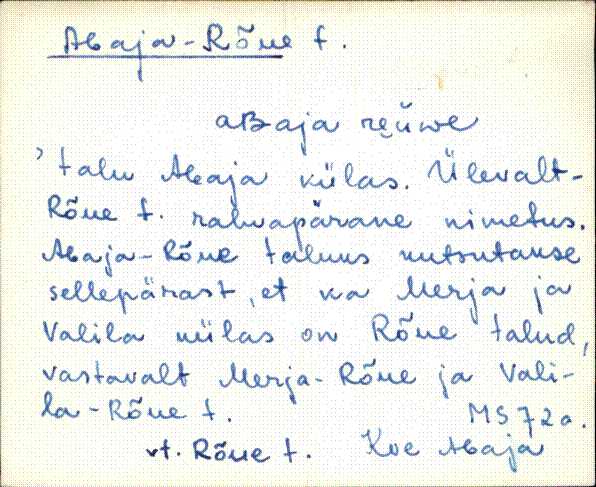 Abaja-Rõue t.
aBaja rȩ̈üwe
’talu Abaja külas. Ülevalt-
Rõue t. rahvapärane nimetus.
Abaja-Rõue taluks kutsutakse
sellepärast, et ka Merja ja
Valila külas on Rõue talud,
vastavalt Merja-Rõue ja Vali-
la-Rõue t.
MS 72a.
vt. Rõue t. Koe Abaja